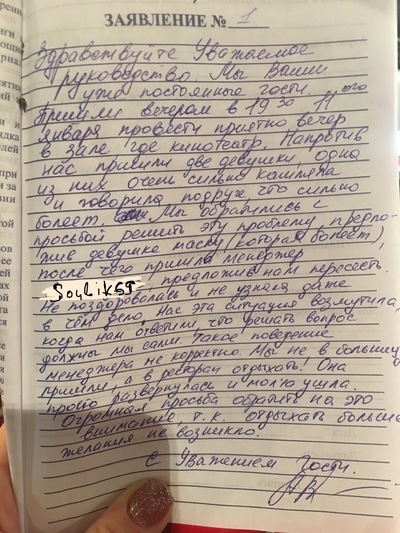 ЗАЯВЛЕНИЕ № 1
Здравствуйте Уважаемое
руководство. Мы Ваши
уже постоянные гости.
Пришли вечером в 19 30 11 ого
января провести приятно вечер
в зале где кинотеатр. Напротив
нас пришли две девушки, одна
из них очень сильно кашляла
и говорила подруге, что сильно
болеет. Мы обратились с
просьбой решить эту проблему, предло-
жив девушке маску (которая болеет),
после чего пришла менеджер
Soulik55, предложив нам пересесть.
Не поздоровалась и не узнала даже
в чём дело. Нас эта ситуация возмутила,
когда нам ответили, что решать вопрос
должны мы сами. Такое поведение
менеджера не корректно. Мы не в больницу
пришли, а в ресторан отдыхать! Она
просто развернулась и молча ушла.
Огромная просьба обратить на это
внимание, т.к. отдыхать больше
желания не возникло.
С Уважением Гости.